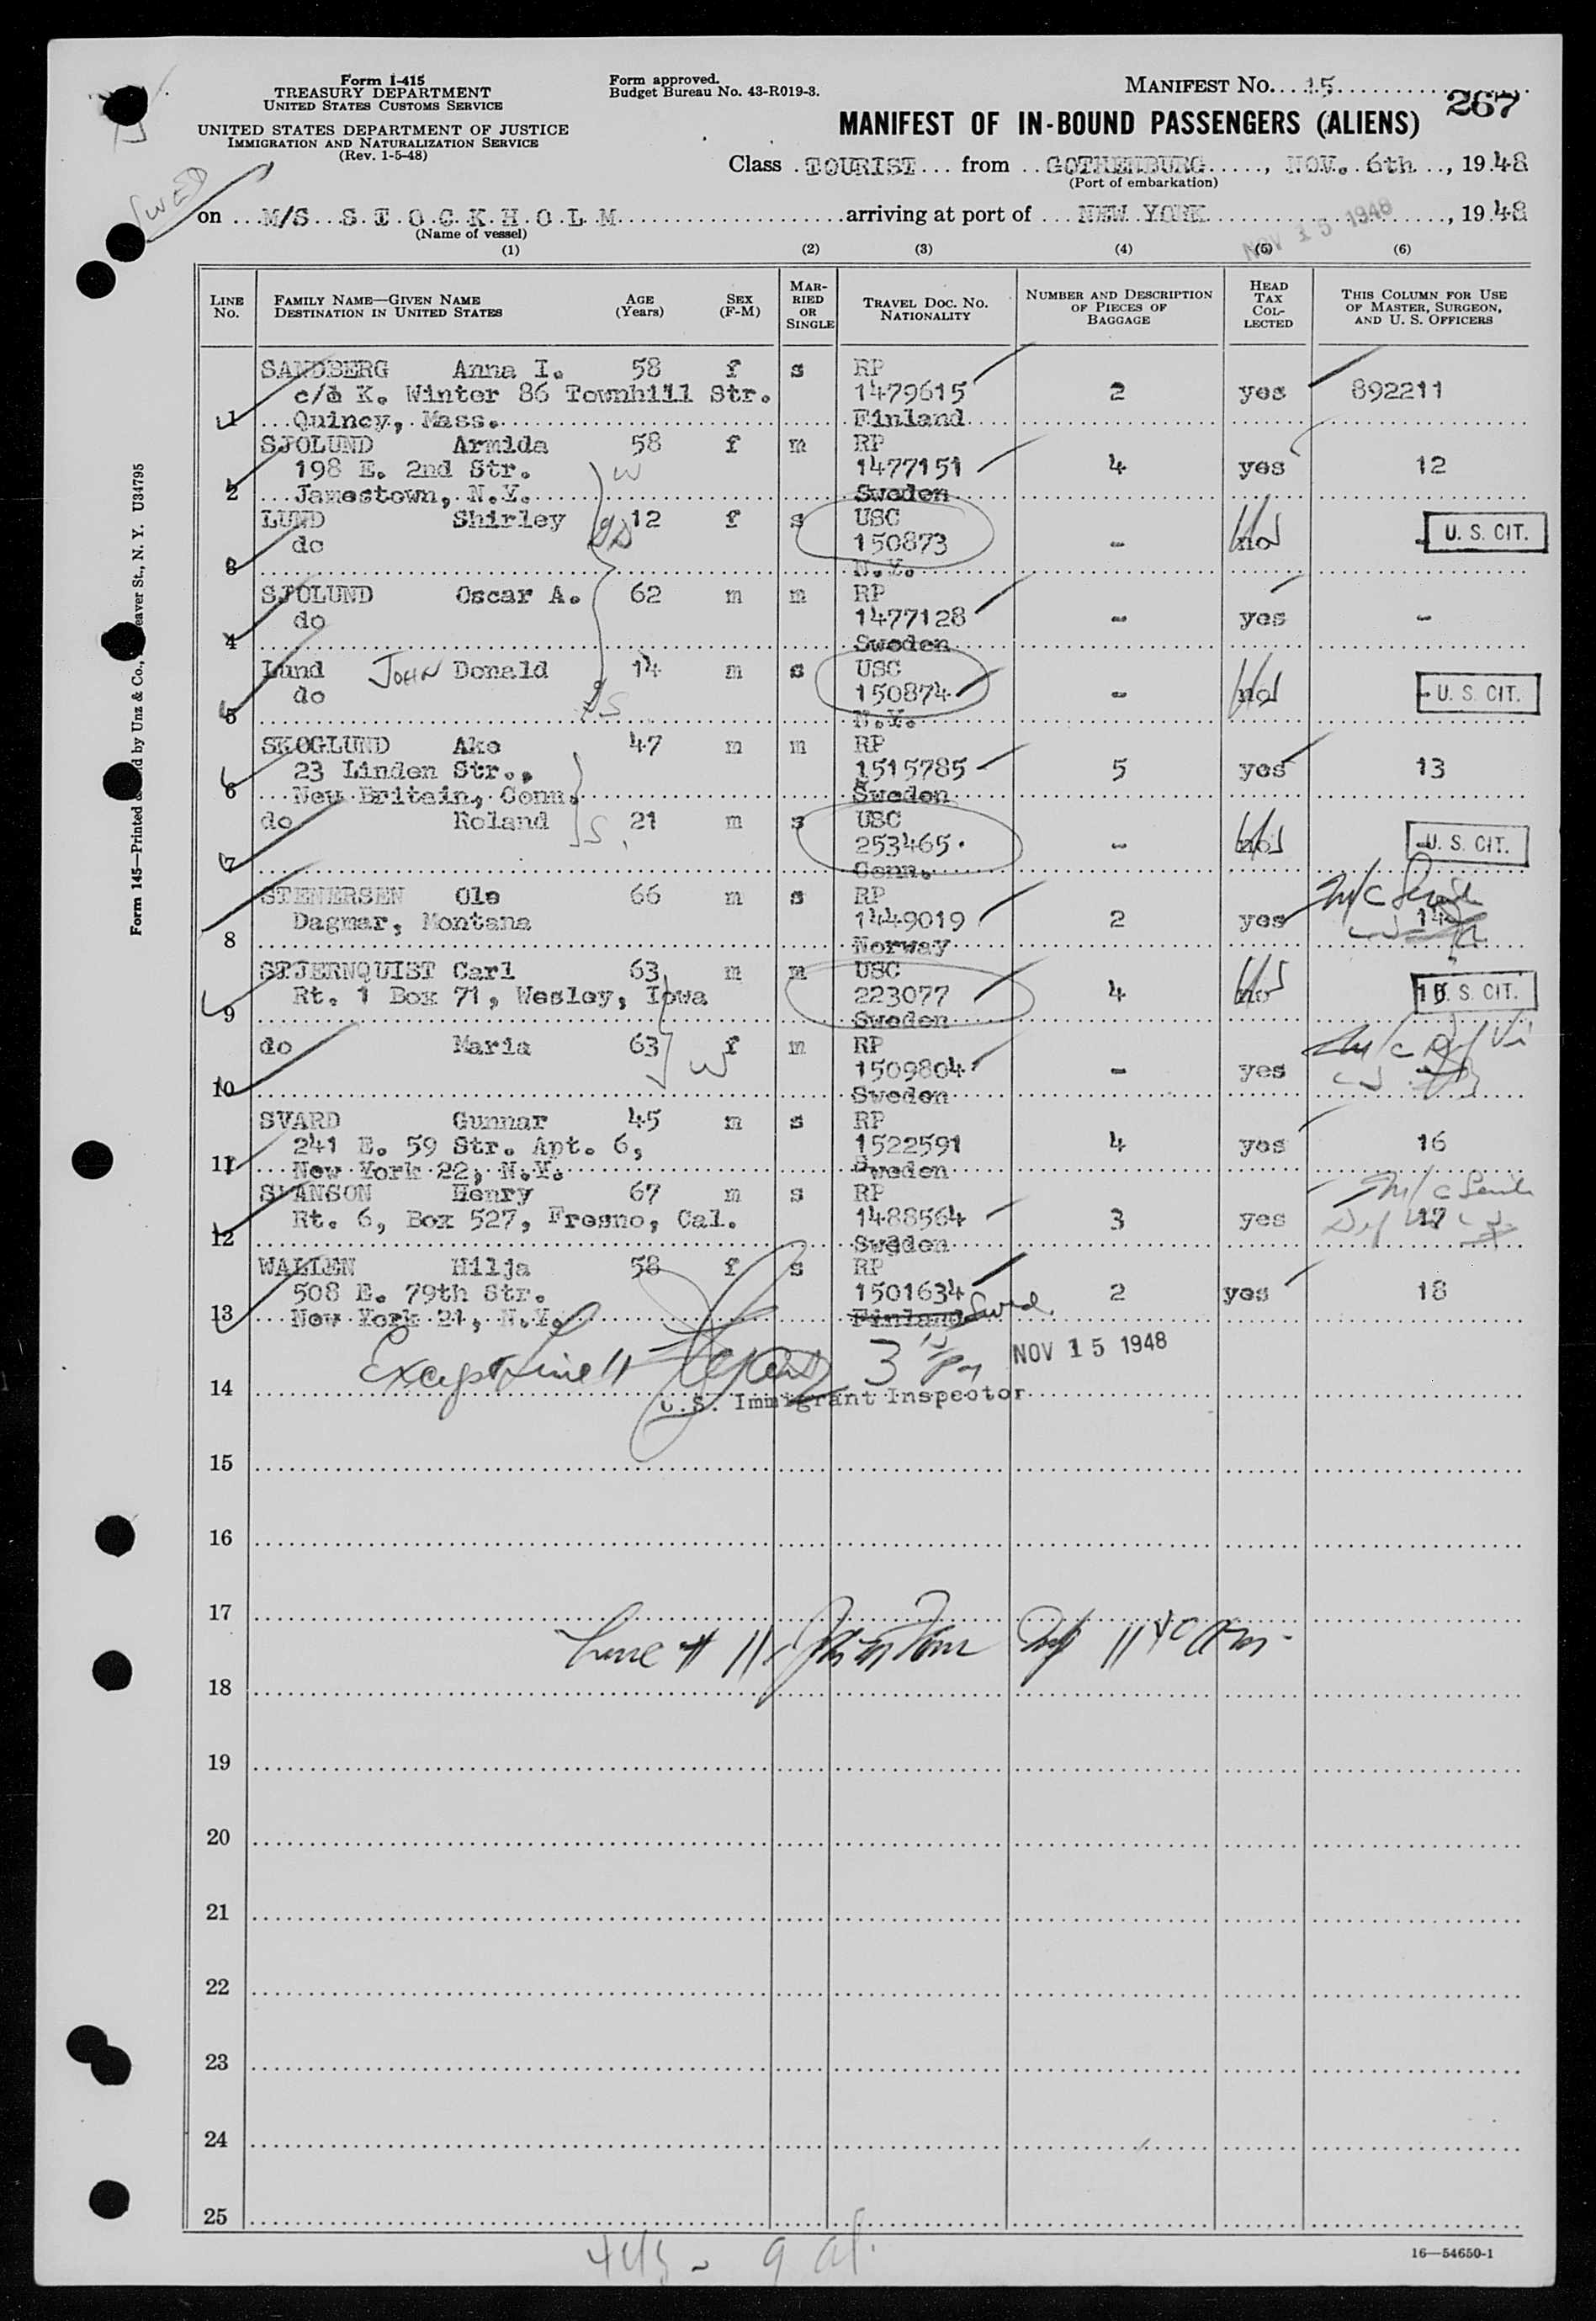 Form I-415
TREASURY DEPARTMENT
UNITED STATES CUSTOMS SERVICE
UNITED STATES DEPARTMENT OF JUSTICE
IMMIGRATION AND NATURALIZATION SERVICE
(Rev. 1-5-48)
Form approved.
Budget Bureau No. 43-R019-3.
MANIFEST NO. 15
267
MANIFEST OF IN-BOUND PASSENGERS (ALIENS)
Class TOURIST from GOTHENBURG, NOV. 6th, 1948
(Port of embarkation)
SWED
on M/S STOCKHOLM arriving at port of NEW YORK, 1948
(Name of vessel)
NOV 15 1948
(1) (2) (3) (4) (5) (6)
LINE NO. FAMILY NAME—GIVEN NAME DESTINATION IN UNITED STATES AGE (Years) SEX (F-M) MARRIED OR SINGLE TRAVEL DOC. NO. NATIONALITY NUMBER AND DESCRIPTION OF PIECES OF BAGGAGE HEAD TAX COLLECTED THIS COLUMN FOR USE OF MASTER, SURGEON, AND U. S. OFFICERS
SANDBERG Anna I. 58 f s RP
c/o K. Winter 86 Townhill Str. 1479615 2 yes 892211
1 Quincy, Mass. Finland
SJOLUND Armida 58 f m RP
198 E. 2nd Str. W 1477151 4 yes 12
2 Jamestown, N.Y. Sweden
LUND Shirley 12 f s USC
do 150873 - no - U. S. CIT.
3 N.Y.
SJOLUND Oscar A. 62 m m RP
do 1477128 - yes -
4 Sweden
Lund JOHN Donald 14 m s USC
do 150874 - no - U. S. CIT.
5 N.Y.
SKOGLUND Ake 47 m m RP
23 Linden Str., 1515785 5 yes 13
6 New Britain, Conn. Sweden
do Roland S 21 m s USC
253465. - no - U. S. CIT.
7 Conn.
STENERSEN Ole 66 m s RP
Dagmar, Montana 1449019 2 yes 14
8 Norway
STJERNQUIST Carl 63 m m USC
Rt. 1 Box 71, Wesley, Iowa 223077 4 no U. S. CIT.
9 Sweden
do Maria 63 W f m RP
1509804 - yes
10 Sweden
SVARD Gunnar 45 m s RP
241 E. 59 Str. Apt. 6, 1522591 4 yes 16
11 New York 22, N.Y. Sweden
SWANSON Henry 67 m s RP
Rt. 6, Box 527, Fresno, Cal. 1488564 3 yes 17
12 Sweden
WALLEN Hilja 58 f s RP
508 E. 79th Str. 1501634 2 yes 18
13 New York 21, N.Y. Finland Swed.
Except Line 11 3 PM NOV 15 1948
14 U.S. Immigrant Inspector
15
16
17
Line # 11 1140 am
18
19
20
21
22
23
24
25
9 al.
16—54650-1
Form 145—Printed by Unz & Co., eaver St., N. Y. U34795